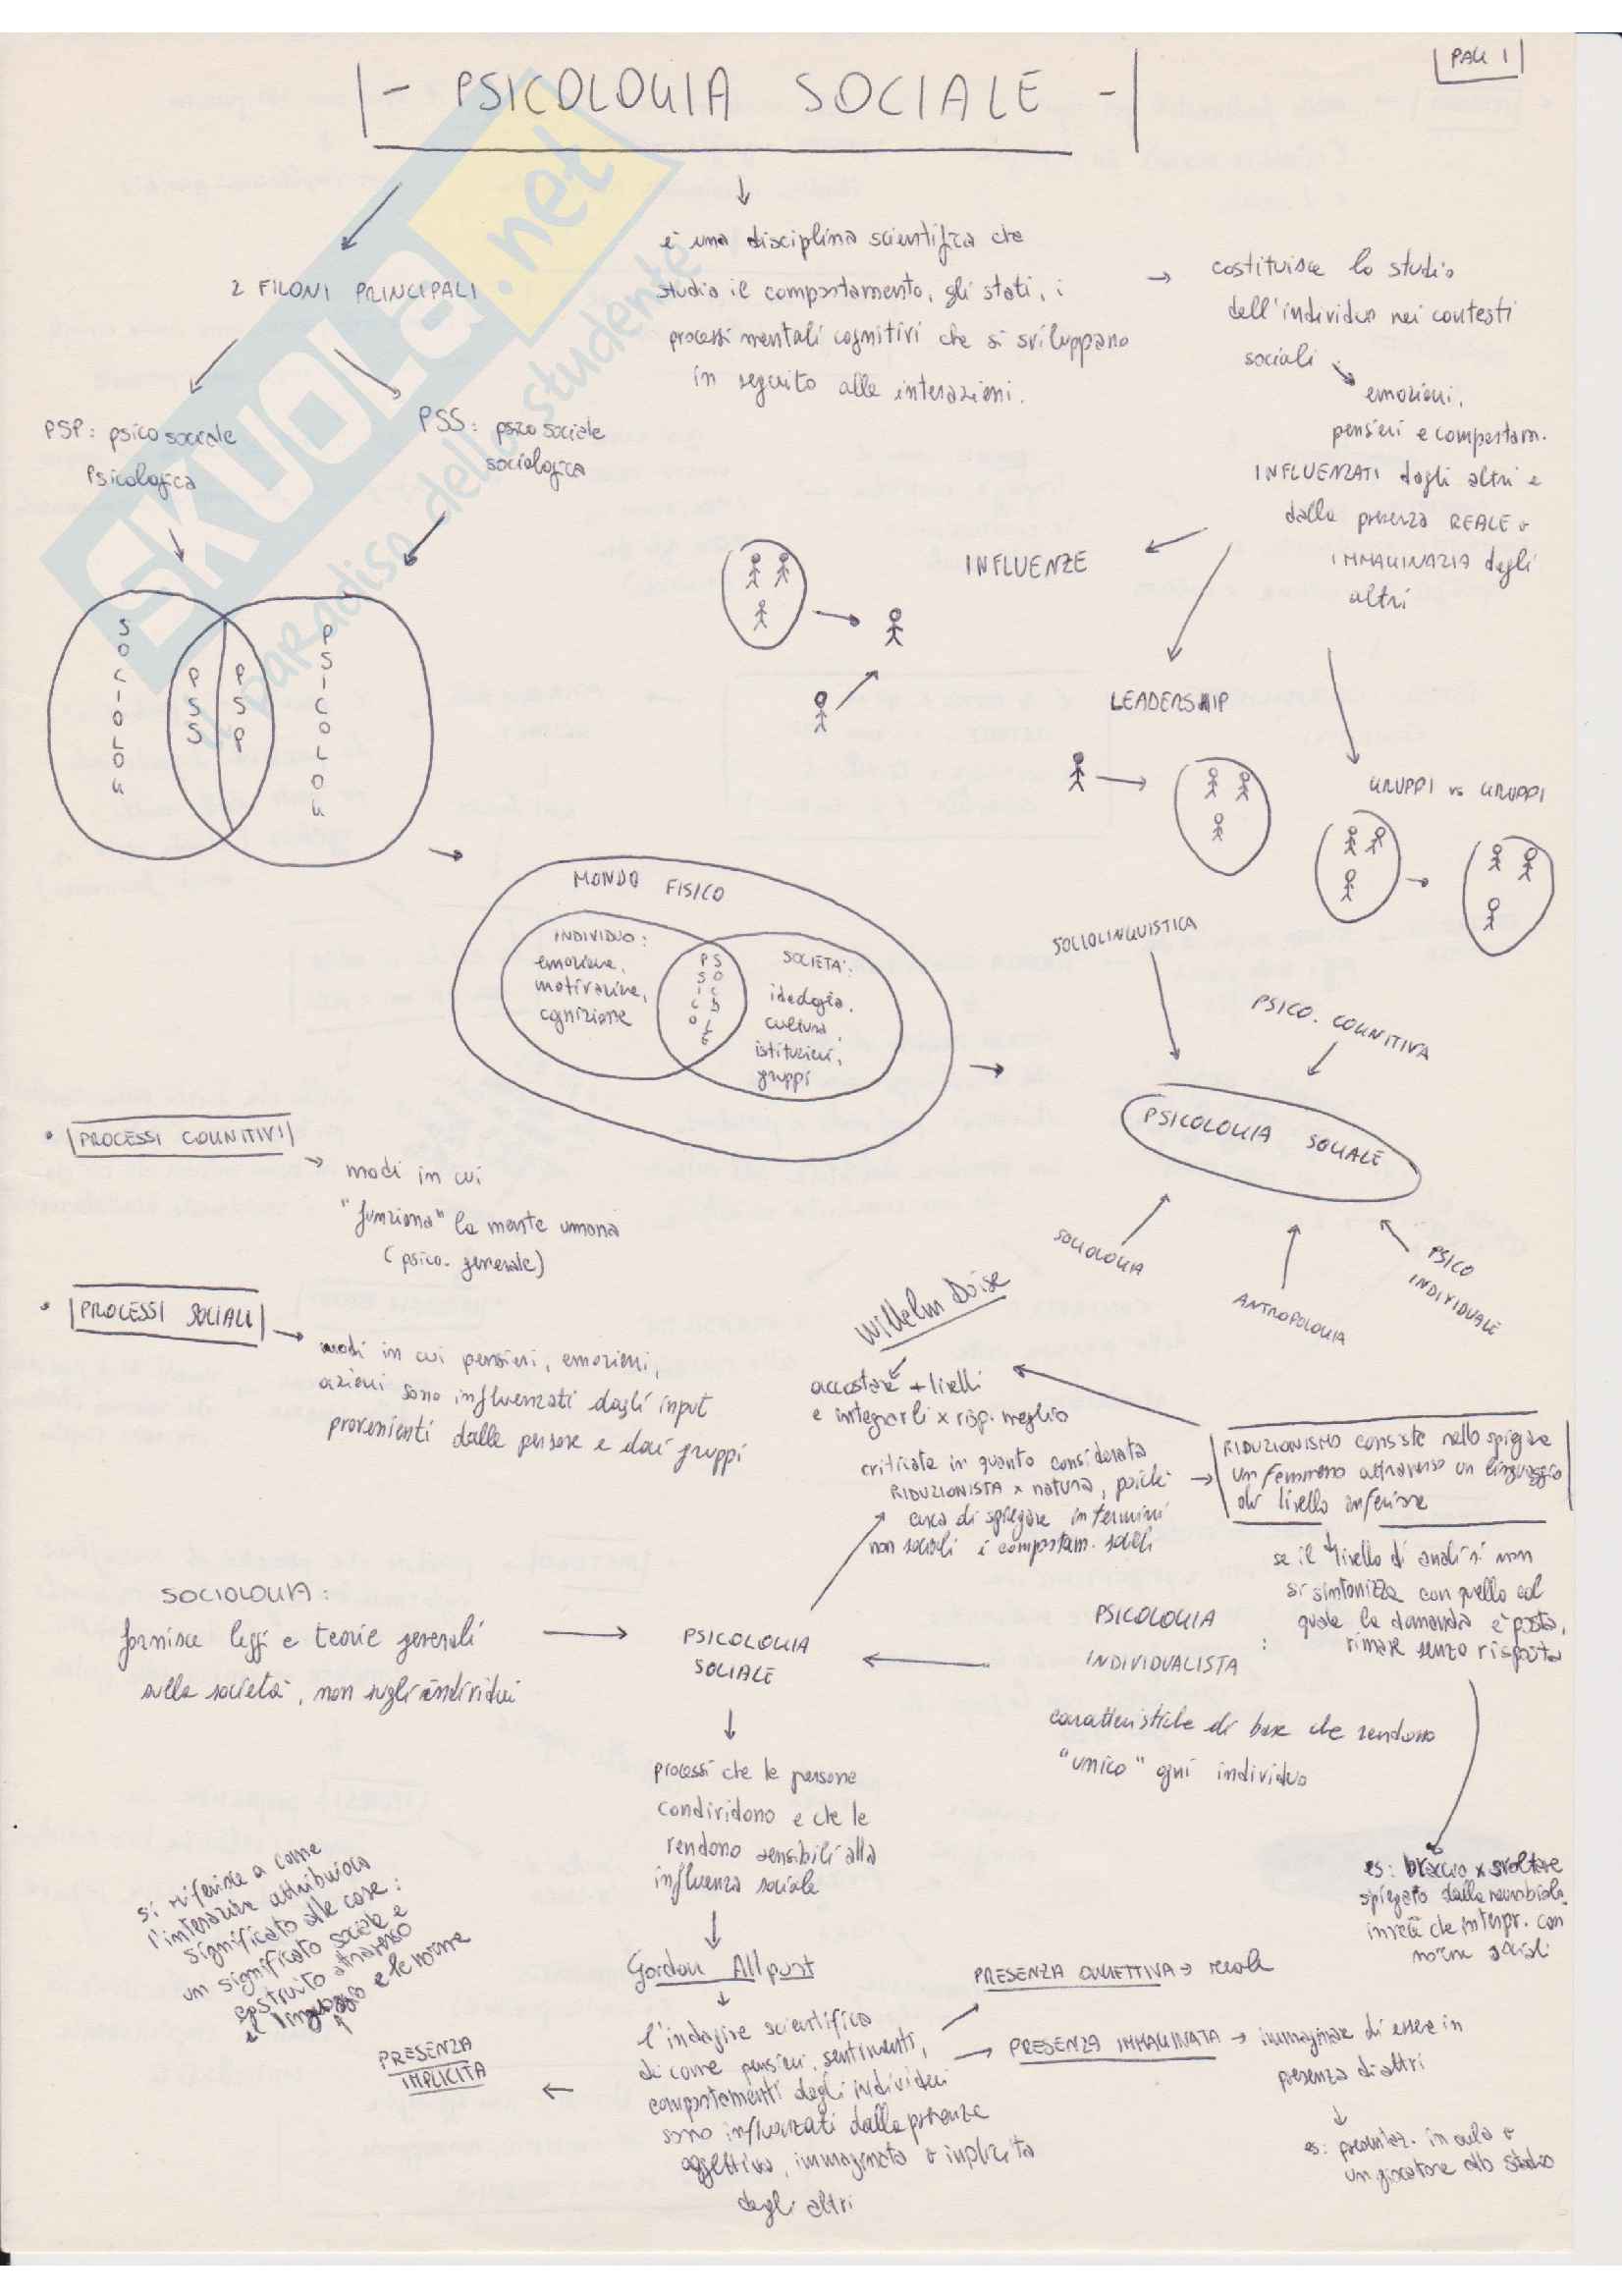 PAG 1
- PSICOLOGIA SOCIALE -
SKUOLA.net
il paradiso dello studente
2 FILONI PRINCIPALI
è una disciplina scientifica che
studia il comportamento, gli stati, i
processi mentali cognitivi che si sviluppano
in seguito alle interazioni.
costituisce lo studio
dell'individuo nei contesti
sociali
emozioni,
pensieri e comportam.
INFLUENZATI dagli altri e
dalla presenza REALE o
IMMAGINARIA degli
altri
PSP: psico sociale
Psicologica
PSS: psico sociale
sociologica
SOCIOLOG
PSS
PSP
PSICOLOG
INFLUENZE
LEADERSHIP
GRUPPI vs GRUPPI
MONDO FISICO
INDIVIDUO:
emozione,
motivazione,
cognizione
PSICO
SOCIALE
SOCIETA':
ideologia,
cultura,
istituzioni,
gruppi
SOCIOLINGUISTICA
PSICO. COGNITIVA
PSICOLOGIA SOCIALE
SOCIOLOGIA
ANTROPOLOGIA
PSICO
INDIVIDUALE
• PROCESSI COGNITIVI
modi in cui
"funziona" la mente umana
(psico. generale)
• PROCESSI SOCIALI
modi in cui pensieri, emozioni,
azioni sono influenzati dagli input
provenienti dalle persone e dai gruppi
Willelm Doise
accostare + livelli
e integrarli x risp. meglio
criticata in quanto considerata
RIDUZIONISTA x natura, poichè
cerca di spiegare in termini
non sociali i comportam. sociali
RIDUZIONISMO consiste nello spiegare
un fenomeno attraverso un linguaggio
di livello inferiore
se il livello di analisi non
si sintonizza con quello col
quale la domanda è posta,
rimane senza risposta
es: braccio x svoltare
spiegato dalla neurobiolo.
invece che interpr. con
norme sociali
SOCIOLOGIA:
fornisce leggi e teorie generali
sulla società, non sugli individui
PSICOLOGIA
SOCIALE
PSICOLOGIA
INDIVIDUALISTA :
caratteristiche di base che rendono
"unico" ogni individuo
processi che le persone
condividono e che le
rendono sensibili alla
influenza sociale
Gordon Allport
l'indagine scientifica
di come pensieri, sentimenti,
comportamenti degli individui
sono influenzati dalla presenza
oggettiva, immaginata o implicita
degli altri
PRESENZA OGGETTIVA → reale
PRESENZA IMMAGINATA → immaginare di essere in
presenza di altri
es: presentaz. in aula o
un giocatore allo stadio
PRESENZA
IMPLICITA
si riferisce a come
l'interazione attribuisca
significato alle cose:
un significato sociale e
costruito attraverso
il linguaggio e le norme